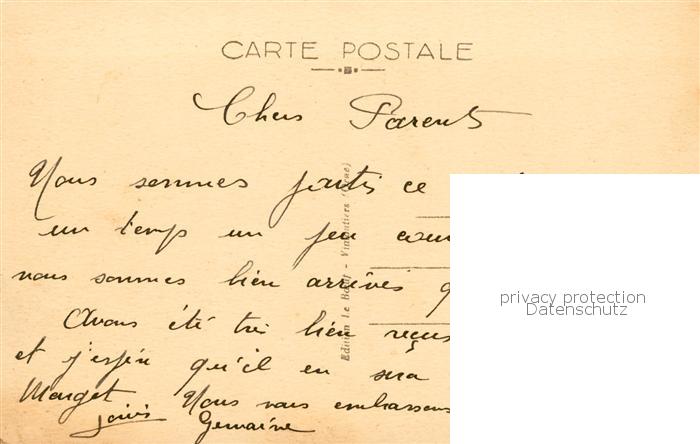 CARTE POSTALE
Chers Parents
Nous sommes partis ce
un temps un peu
nous sommes bien arrivés
Avons été très bien reçus
et j'espère qu'il en sera
Nous vous embrassons
Germaine
Edition le Bœuf - Vimoutiers (Orne)
privacy protection
Datenschutz